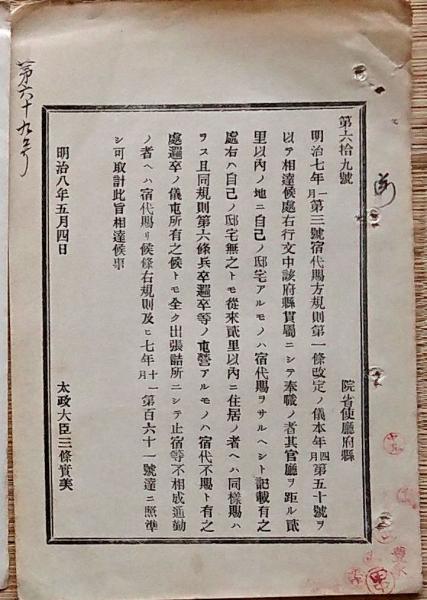 第六十九号
第六拾九號
院省使廳府縣
明治七年一月第三號宿代賜方規則第一條改定ノ儀本年四月第五十號ヲ
以テ相達候處右行文中該府縣貫屬ニシテ奉職ノ者其官廳ヲ距ル貳
里以內ノ地ニ自己ノ邸宅アルモノハ宿代賜ヲサルヘシト記載有之
處右ハ自己ノ邸宅無之トモ從來貳里以內ニ住居ノ者ヘハ同樣賜ハ
ヲス且同規則第六條兵卒邏卒等ノ屯營アルモノハ宿代不賜ト有之
處邏卒ノ儀屯所有之候トモ全ク出張詰所ニシテ止宿等不相成通勤
ノ者ヘハ宿代賜リ候條右規則及ヒ七年十一月第百六十一號達ニ照準
シ可取計此旨相達候事
明治八年五月四日
太政大臣三條實美